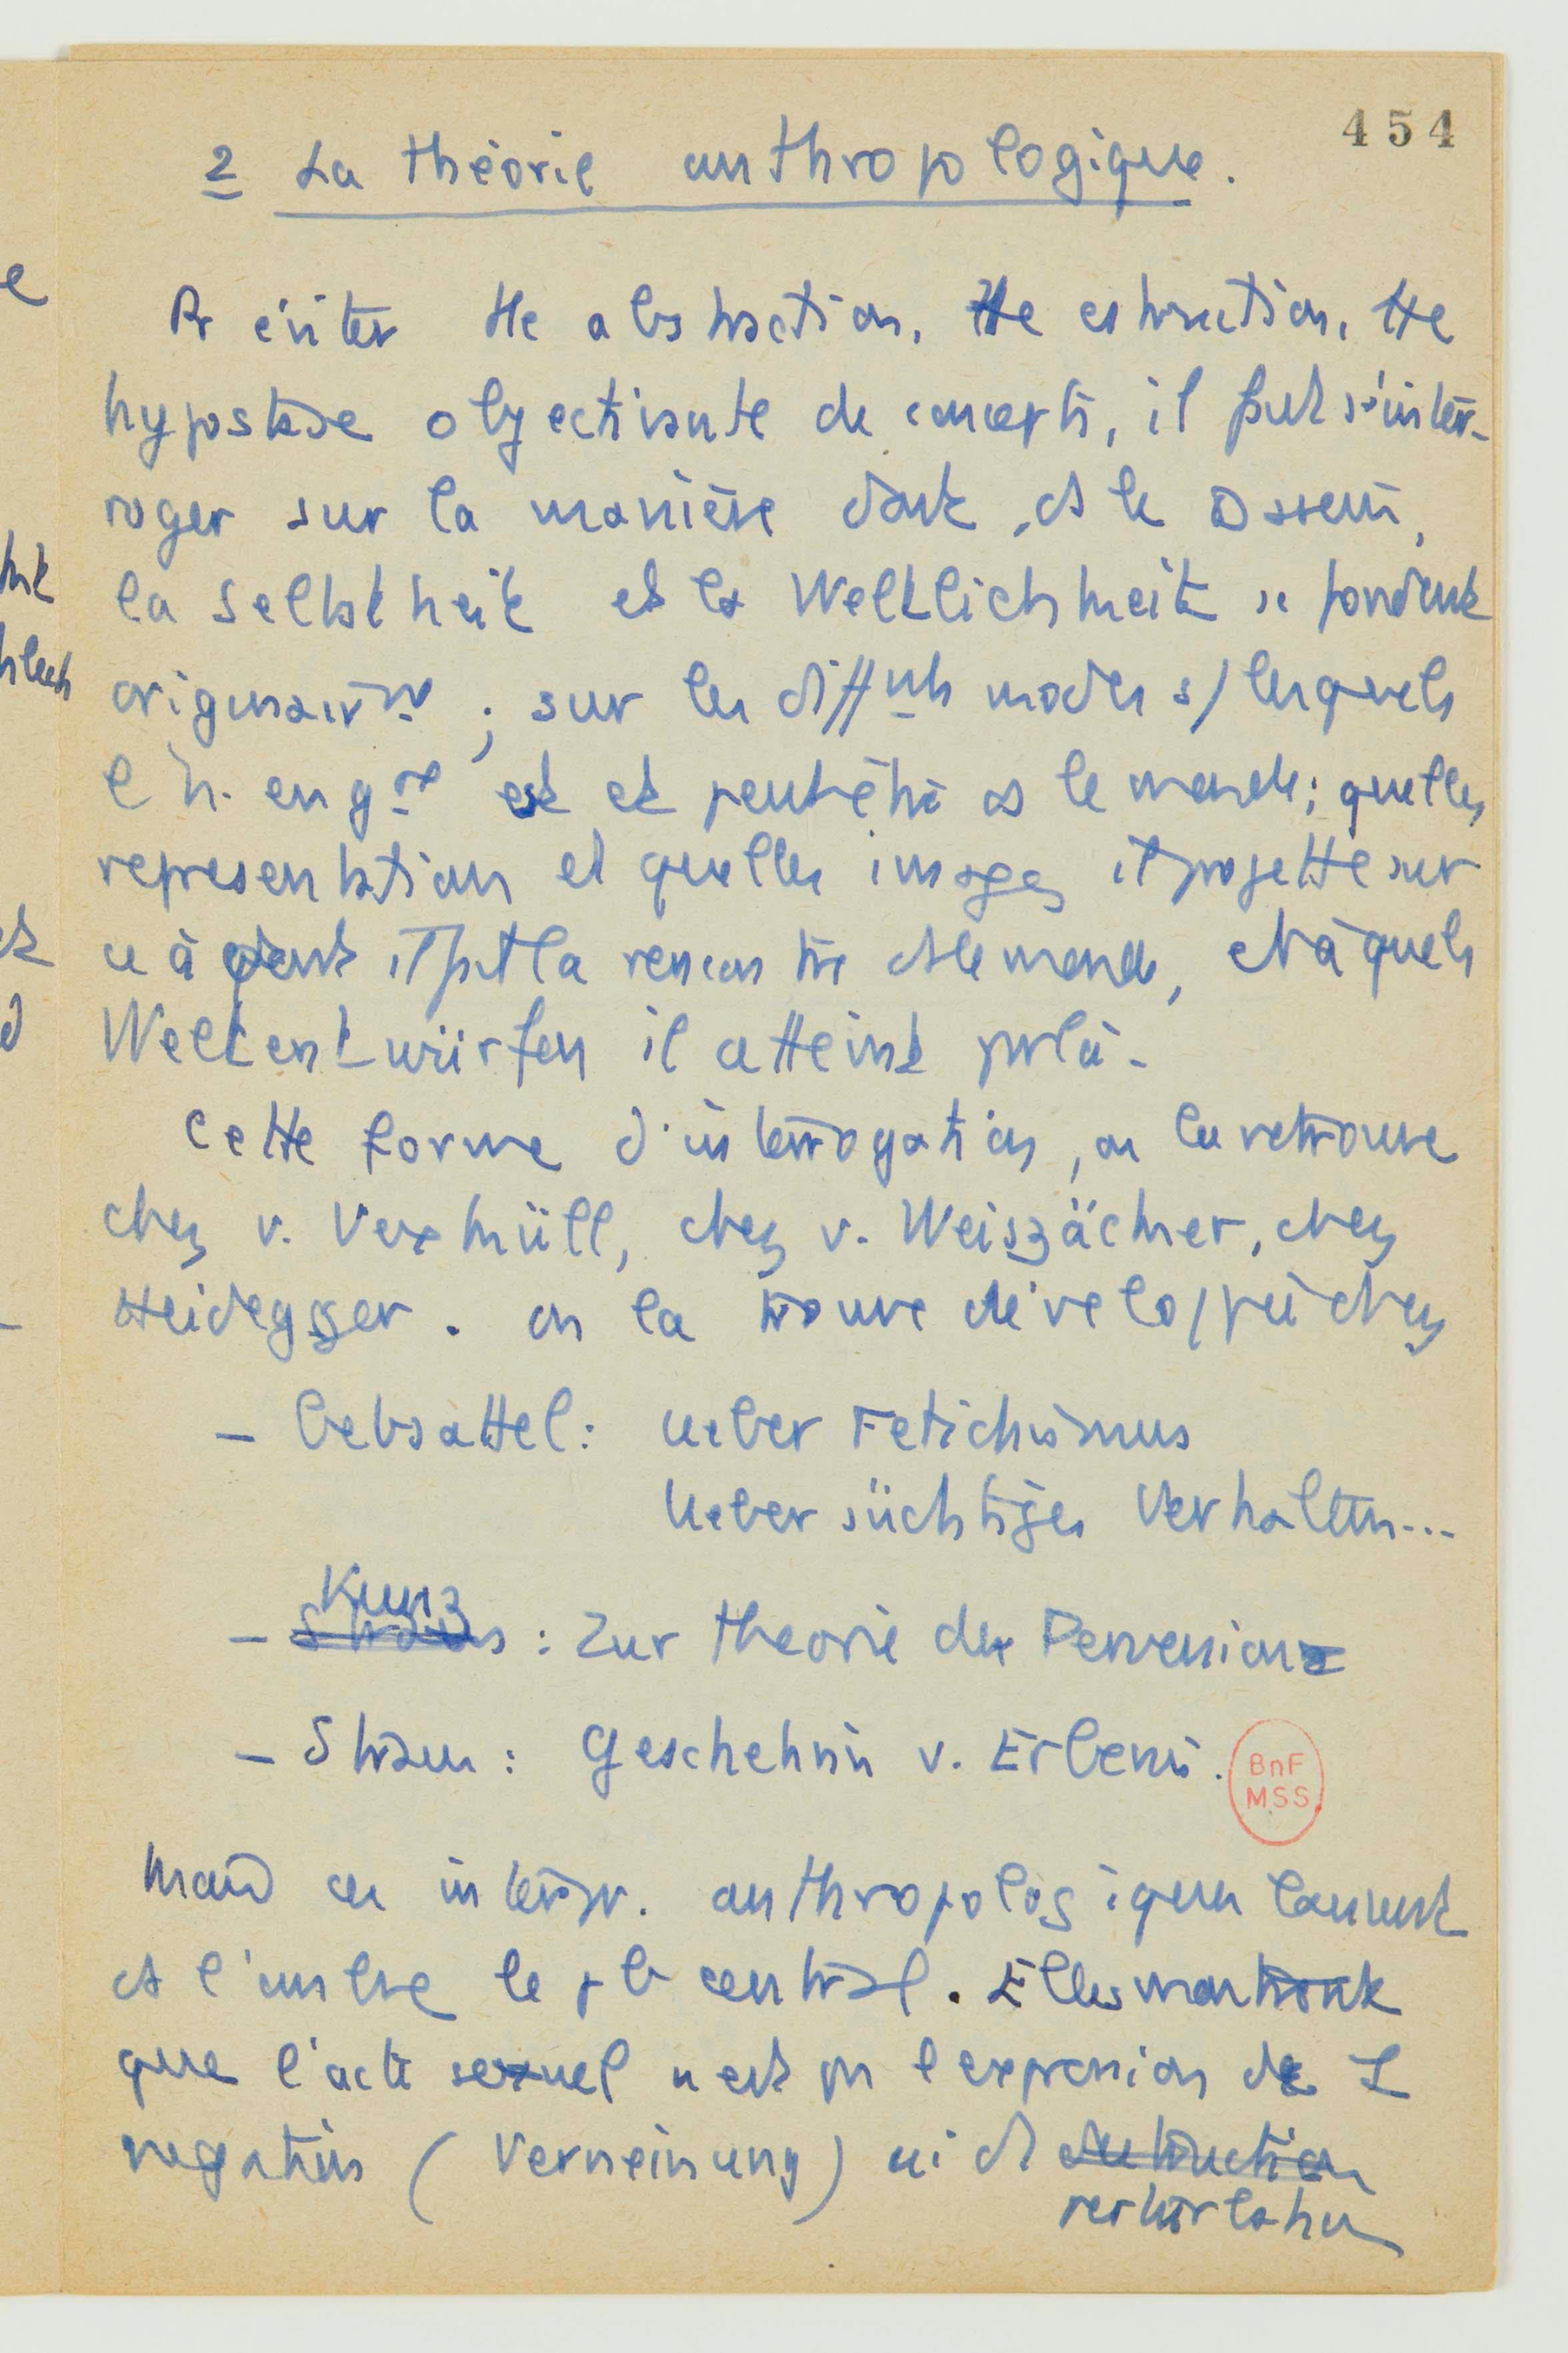 454
2 La théorie anthropologique.
Pr éviter tte abstraction, tte extraction, tte
hypostase objectivante de concepts, il faut s'inter-
roger sur la manière dont, ds le Dasein,
la Selbstheit et la Weltlichkeit se fondent
originairt ; sur les difftnts modes s/ lesquels
l'h. en gral est et peut être ds le monde; quelles
representations et quelles images il projette sur
ce à quoi il fait la rencontre ds le monde, et à quels
Weltentwürfen il atteint par là.
Cette forme d'interrogation, on la retrouve
chez v. Vexhüll, chez v. Weiszächer, chez
Heidegger. on la trouve développée chez
- Gebsattel: Ueber Fetichismus
Ueber süchtiges Verhalten...
Kunz
- Straus : Zur Theorie der Perversion
- Straus : Geschehnis v. Erlebnis.
BnF
MSS
Mais ces interpr. anthropologiques laissent
ds l'ombre le pb central. Elles montrent
que l'acte sexuel n'est pas l'expression de
negation (Verneinung) ni d destruction
perturbation